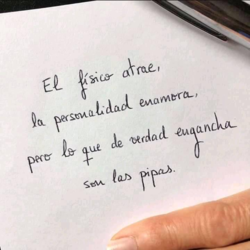 El físico atrae,
la personalidad enamora,
pero lo que de verdad engancha
son las pipas.